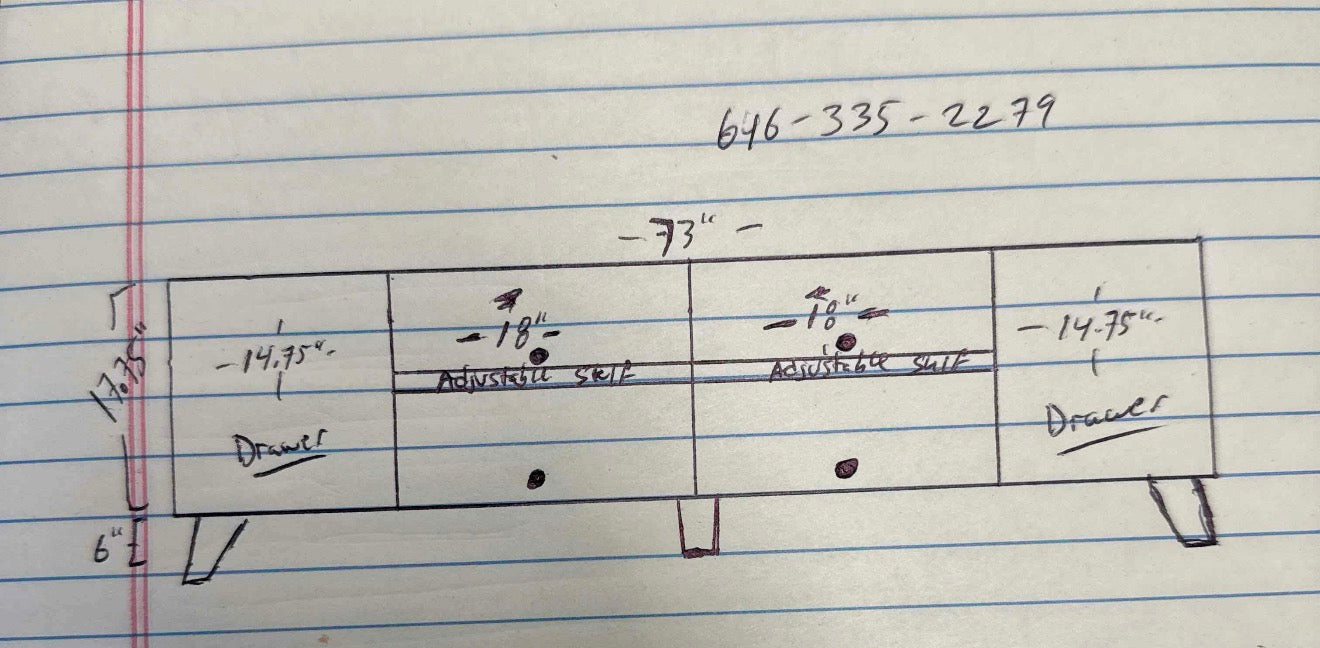 646-335-2279
-73"-
-18"-
-18"-
-14.75"-
-14.75"-
17.75"
Adjustable Shelf
Adjustable Shelf
Drawer
Drawer
6"